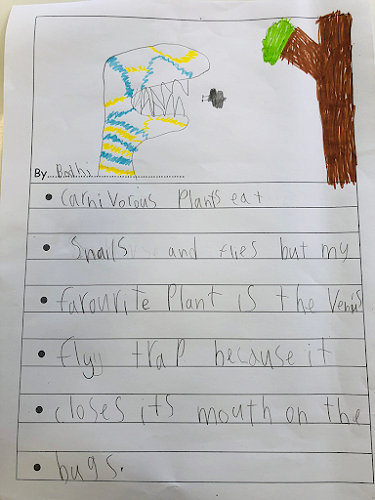 By Bodhi
• Carnivorous Plants eat
• Snails and flies but my
• favourite Plant is the Venus
• flyy trap because it
• closes its mouth on the
• bugs.